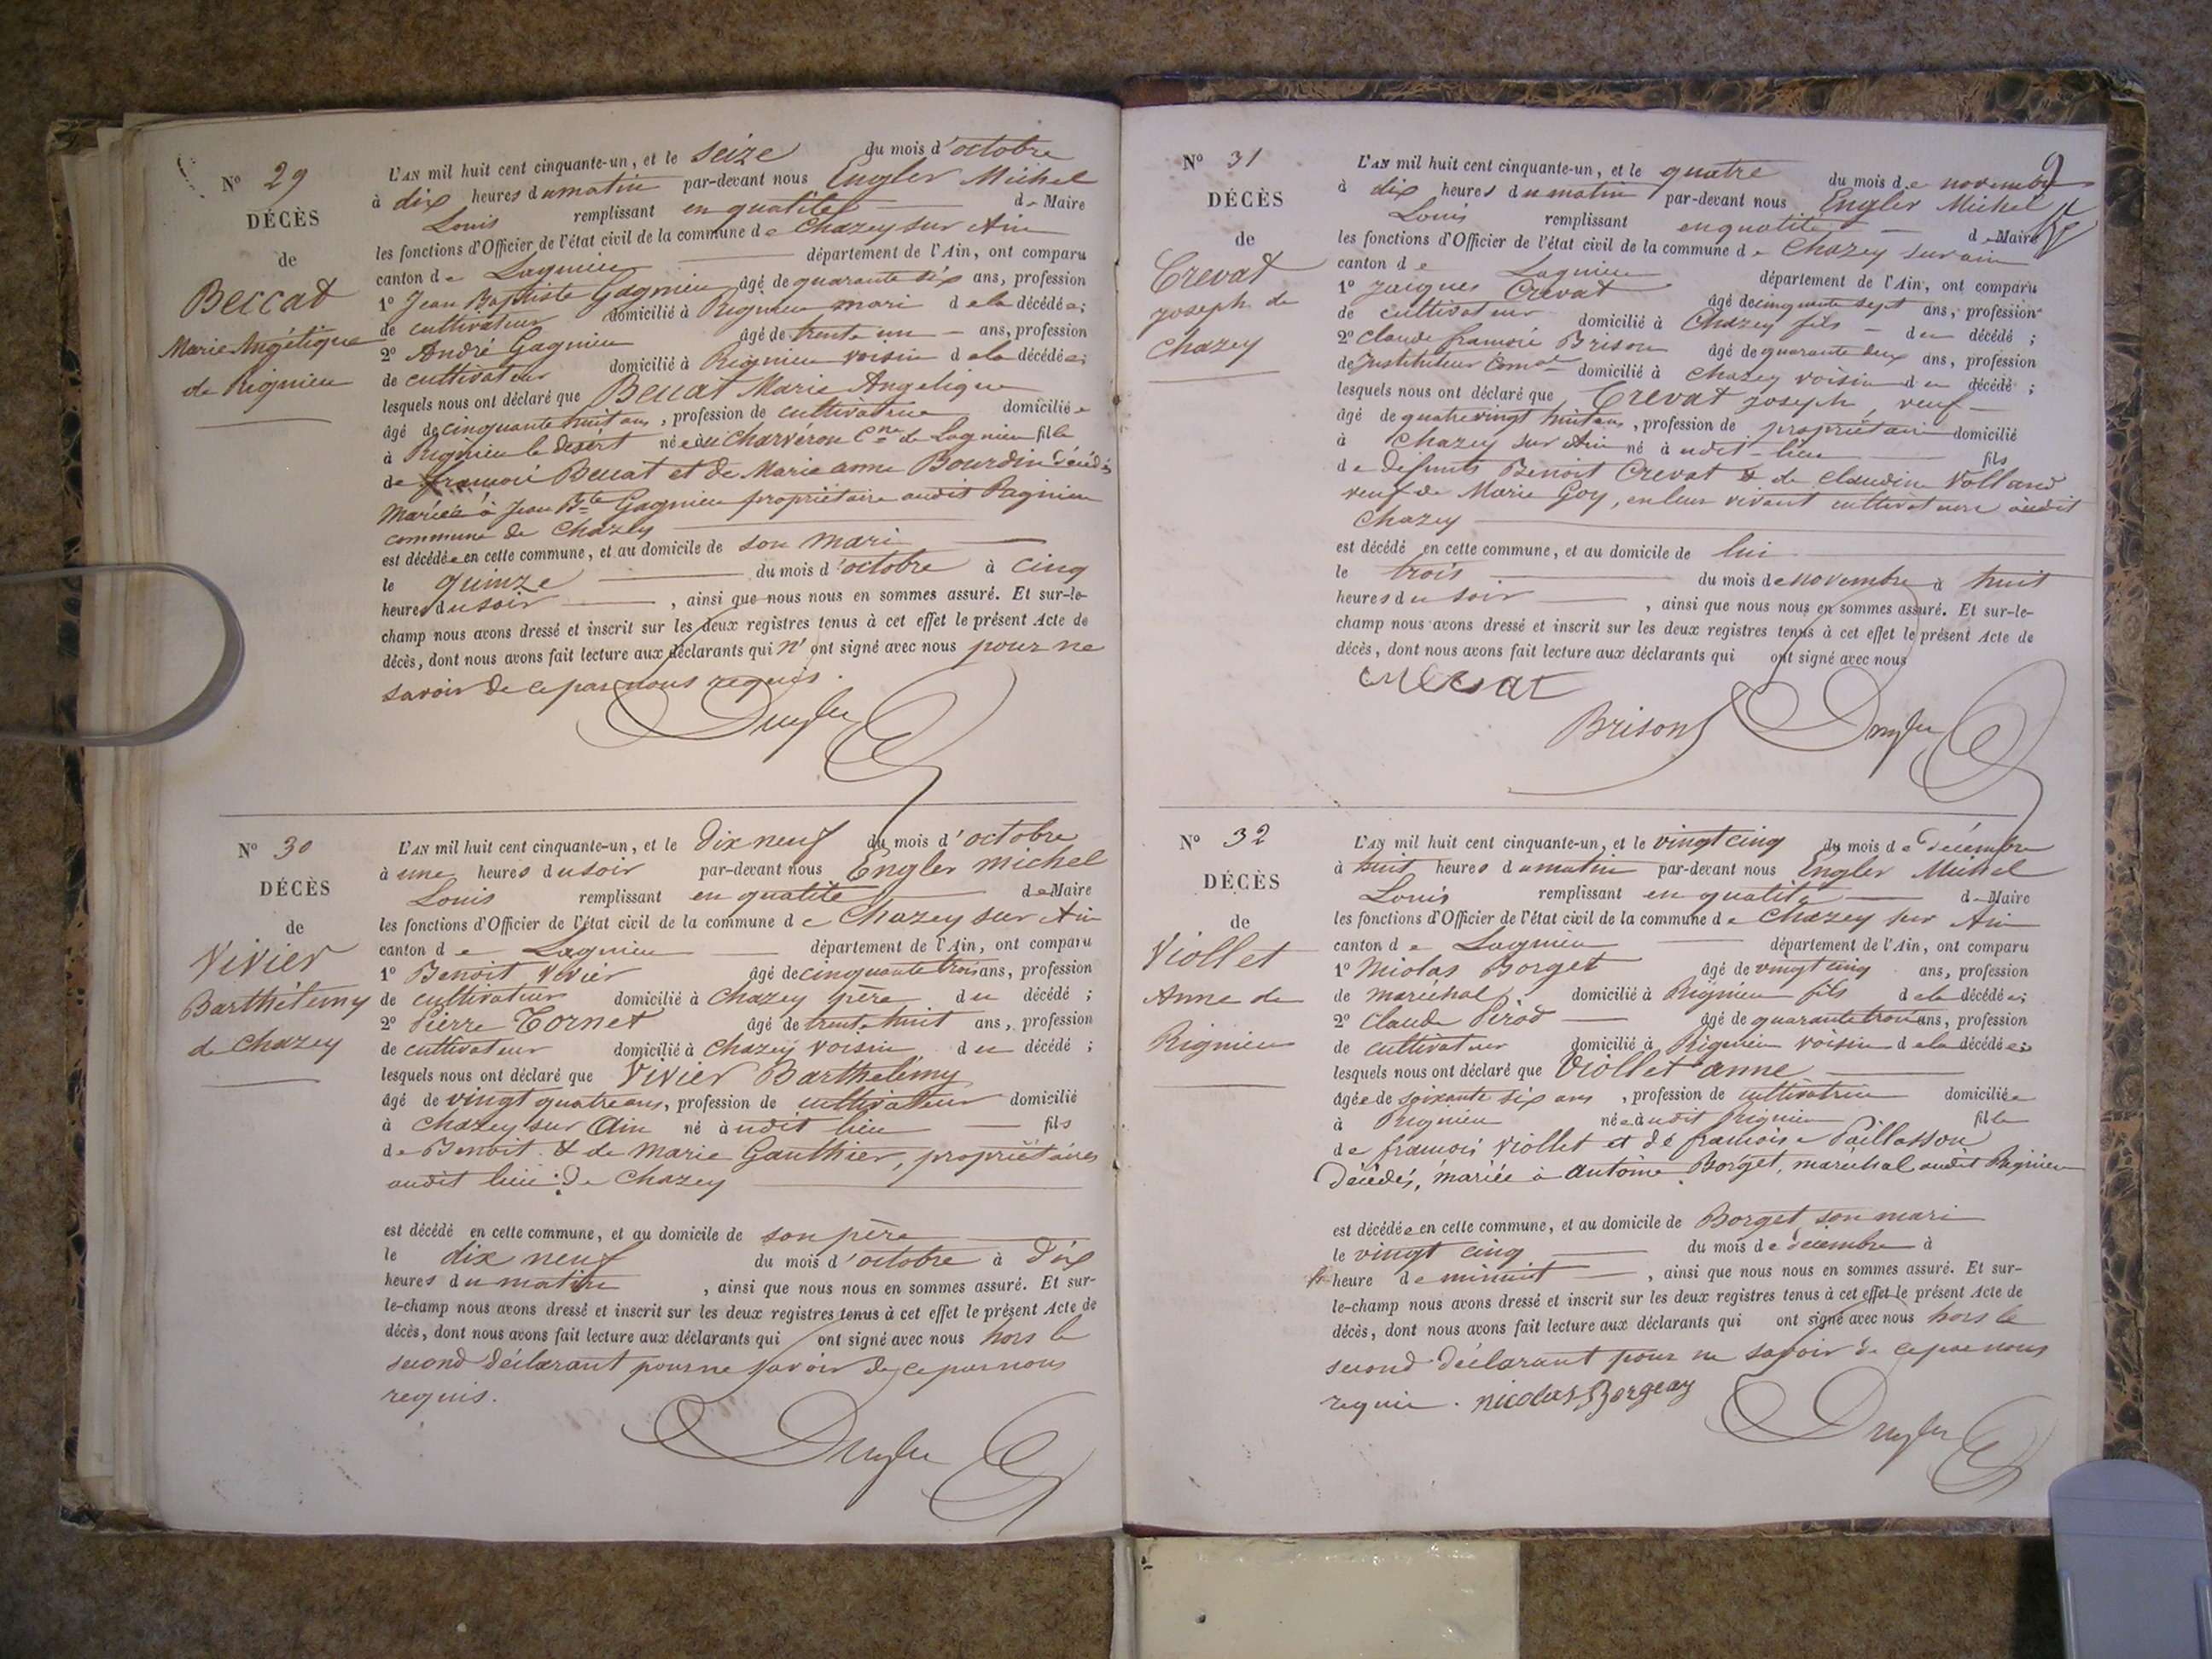 N° 29
DÉCÈS
de
Beccat
Marie Angélique
de Rignieu
L'AN mil huit cent cinquante-un, et le seize du mois d'octobre
à dix heures du matin par-devant nous Engler Michel
Louis remplissant en qualité de Maire
les fonctions d'Officier de l'état civil de la commune de Chazey sur Ain
canton de Lagnieu département de l'Ain, ont comparu
1° Jean Baptiste Gagnieu âgé de quarante six ans, profession
de cultivateur domicilié à Rignieu mari de la décédée;
2° André Gagnieu âgé de trente un ans, profession
de cultivateur domicilié à Rignieu voisin de la décédée;
lesquels nous ont déclaré que Beccat Marie Angelique
âgé de cinquante huit ans, profession de cultivatrice domiciliée
à Rignieu le desert née à Charvéron Cne de Lagnieu fille
de françois Beccat et de Marie anne Bourdin décédés
Mariée à Jean Bte Gagnieu propriétaire audit Rignieu
commune de Chazey
est décédée en cette commune, et au domicile de son mari
le quinze du mois d'octobre à cinq
heures du soir, ainsi que nous nous en sommes assuré. Et sur-le-
champ nous avons dressé et inscrit sur les deux registres tenus à cet effet le présent Acte de
décès, dont nous avons fait lecture aux déclarants qui n'ont signé avec nous pour ne
savoir de ce par nous requis.
Engler
N° 30
DÉCÈS
de
Vivier
Barthélemy
de Chazey
L'AN mil huit cent cinquante-un, et le dix neuf du mois d'octobre
à une heures du soir par-devant nous Engler Michel
Louis remplissant en qualité de Maire
les fonctions d'Officier de l'état civil de la commune de Chazey sur Ain
canton de Lagnieu département de l'Ain, ont comparu
1° Benoit Vivier âgé de cinquante trois ans, profession
de cultivateur domicilié à Chazey père du décédé;
2° Pierre Cornet âgé de trente huit ans, profession
de cultivateur domicilié à Chazey voisin du décédé;
lesquels nous ont déclaré que Vivier Barthélémy
âgé de vingt quatre ans, profession de cultivateur domicilié
à Chazey sur Ain né audit lieu fils
de Benoit & de Marie Gauthier, propriétaires
audit lieu de Chazey
est décédé en cette commune, et au domicile de son père
le dix neuf du mois d'octobre à dix
heures du matin, ainsi que nous nous en sommes assuré. Et sur-
le-champ nous avons dressé et inscrit sur les deux registres tenus à cet effet le présent Acte de
décès, dont nous avons fait lecture aux déclarants qui ont signé avec nous hors le
second déclarant pour ne savoir de ce par nous
requis.
Engler
9
N° 31
DÉCÈS
de
Crevat
joseph de
Chazey
L'AN mil huit cent cinquante-un, et le quatre du mois de novembre
à dix heures du matin par-devant nous Engler Michel
Louis remplissant en qualité de Maire
les fonctions d'Officier de l'état civil de la commune de Chazey sur ain
canton de Lagnieu département de l'Ain, ont comparu
1° jacques Crevat âgé de cinquante sept ans, profession
de cultivateur domicilié à Chazey fils du décédé;
2° Claude françois Brison âgé de quarante deux ans, profession
de Instituteur Comal domicilié à Chazey voisin du décédé;
lesquels nous ont déclaré que Crevat joseph, veuf
âgé de quatre vingt huit ans, profession de propriétaire domicilié
à Chazey sur Ain né audit lieu fils
de défunts Benoit Crevat & de Claudine Volland
veuf de Marie Goy, en leur vivant cultivateurs audit
Chazey
est décédé en cette commune, et au domicile de lui
le trois du mois de novembre à huit
heures du soir, ainsi que nous nous en sommes assuré. Et sur-le-
champ nous avons dressé et inscrit sur les deux registres tenus à cet effet le présent Acte de
décès, dont nous avons fait lecture aux déclarants qui ont signé avec nous
crevat
Brison Engler
N° 32
DÉCÈS
de
Viollet
Anne de
Rignieu
L'AN mil huit cent cinquante-un, et le vingt cinq du mois de décembre
à huit heures du matin par-devant nous Engler Michel
Louis remplissant en qualité de Maire
les fonctions d'Officier de l'état civil de la commune de Chazey sur Ain
canton de Lagnieu département de l'Ain, ont comparu
1° Nicolas Borget âgé de vingt cinq ans, profession
de maréchal domicilié à Rignieu fils de la décédée;
2° Claude Pérod âgé de quarante trois ans, profession
de cultivateur domicilié à Rignieu voisin de la décédée;
lesquels nous ont déclaré que Viollet anne
âgée de soixante six ans, profession de cultivatrice domiciliée
à Rignieu née audit Rignieu fille
de françois Viollet et de françoise Paillasson
Décédés, mariée à Antoine Borget, maréchal audit Rignieu
est décédée en cette commune, et au domicile de Borget son mari
le vingt cinq du mois de décembre à
heure de minuit, ainsi que nous nous en sommes assuré. Et sur-
le-champ nous avons dressé et inscrit sur les deux registres tenus à cet effet le présent Acte de
décès, dont nous avons fait lecture aux déclarants qui ont signé avec nous hors le
second déclarant pour ne savoir de ce par nous
requis. nicolas Borgeay
Engler